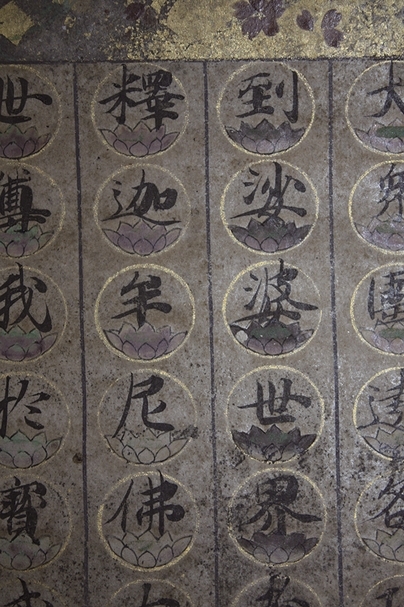 大眾圍遶各
到娑婆世界
釋迦牟尼佛
世尊我於寶